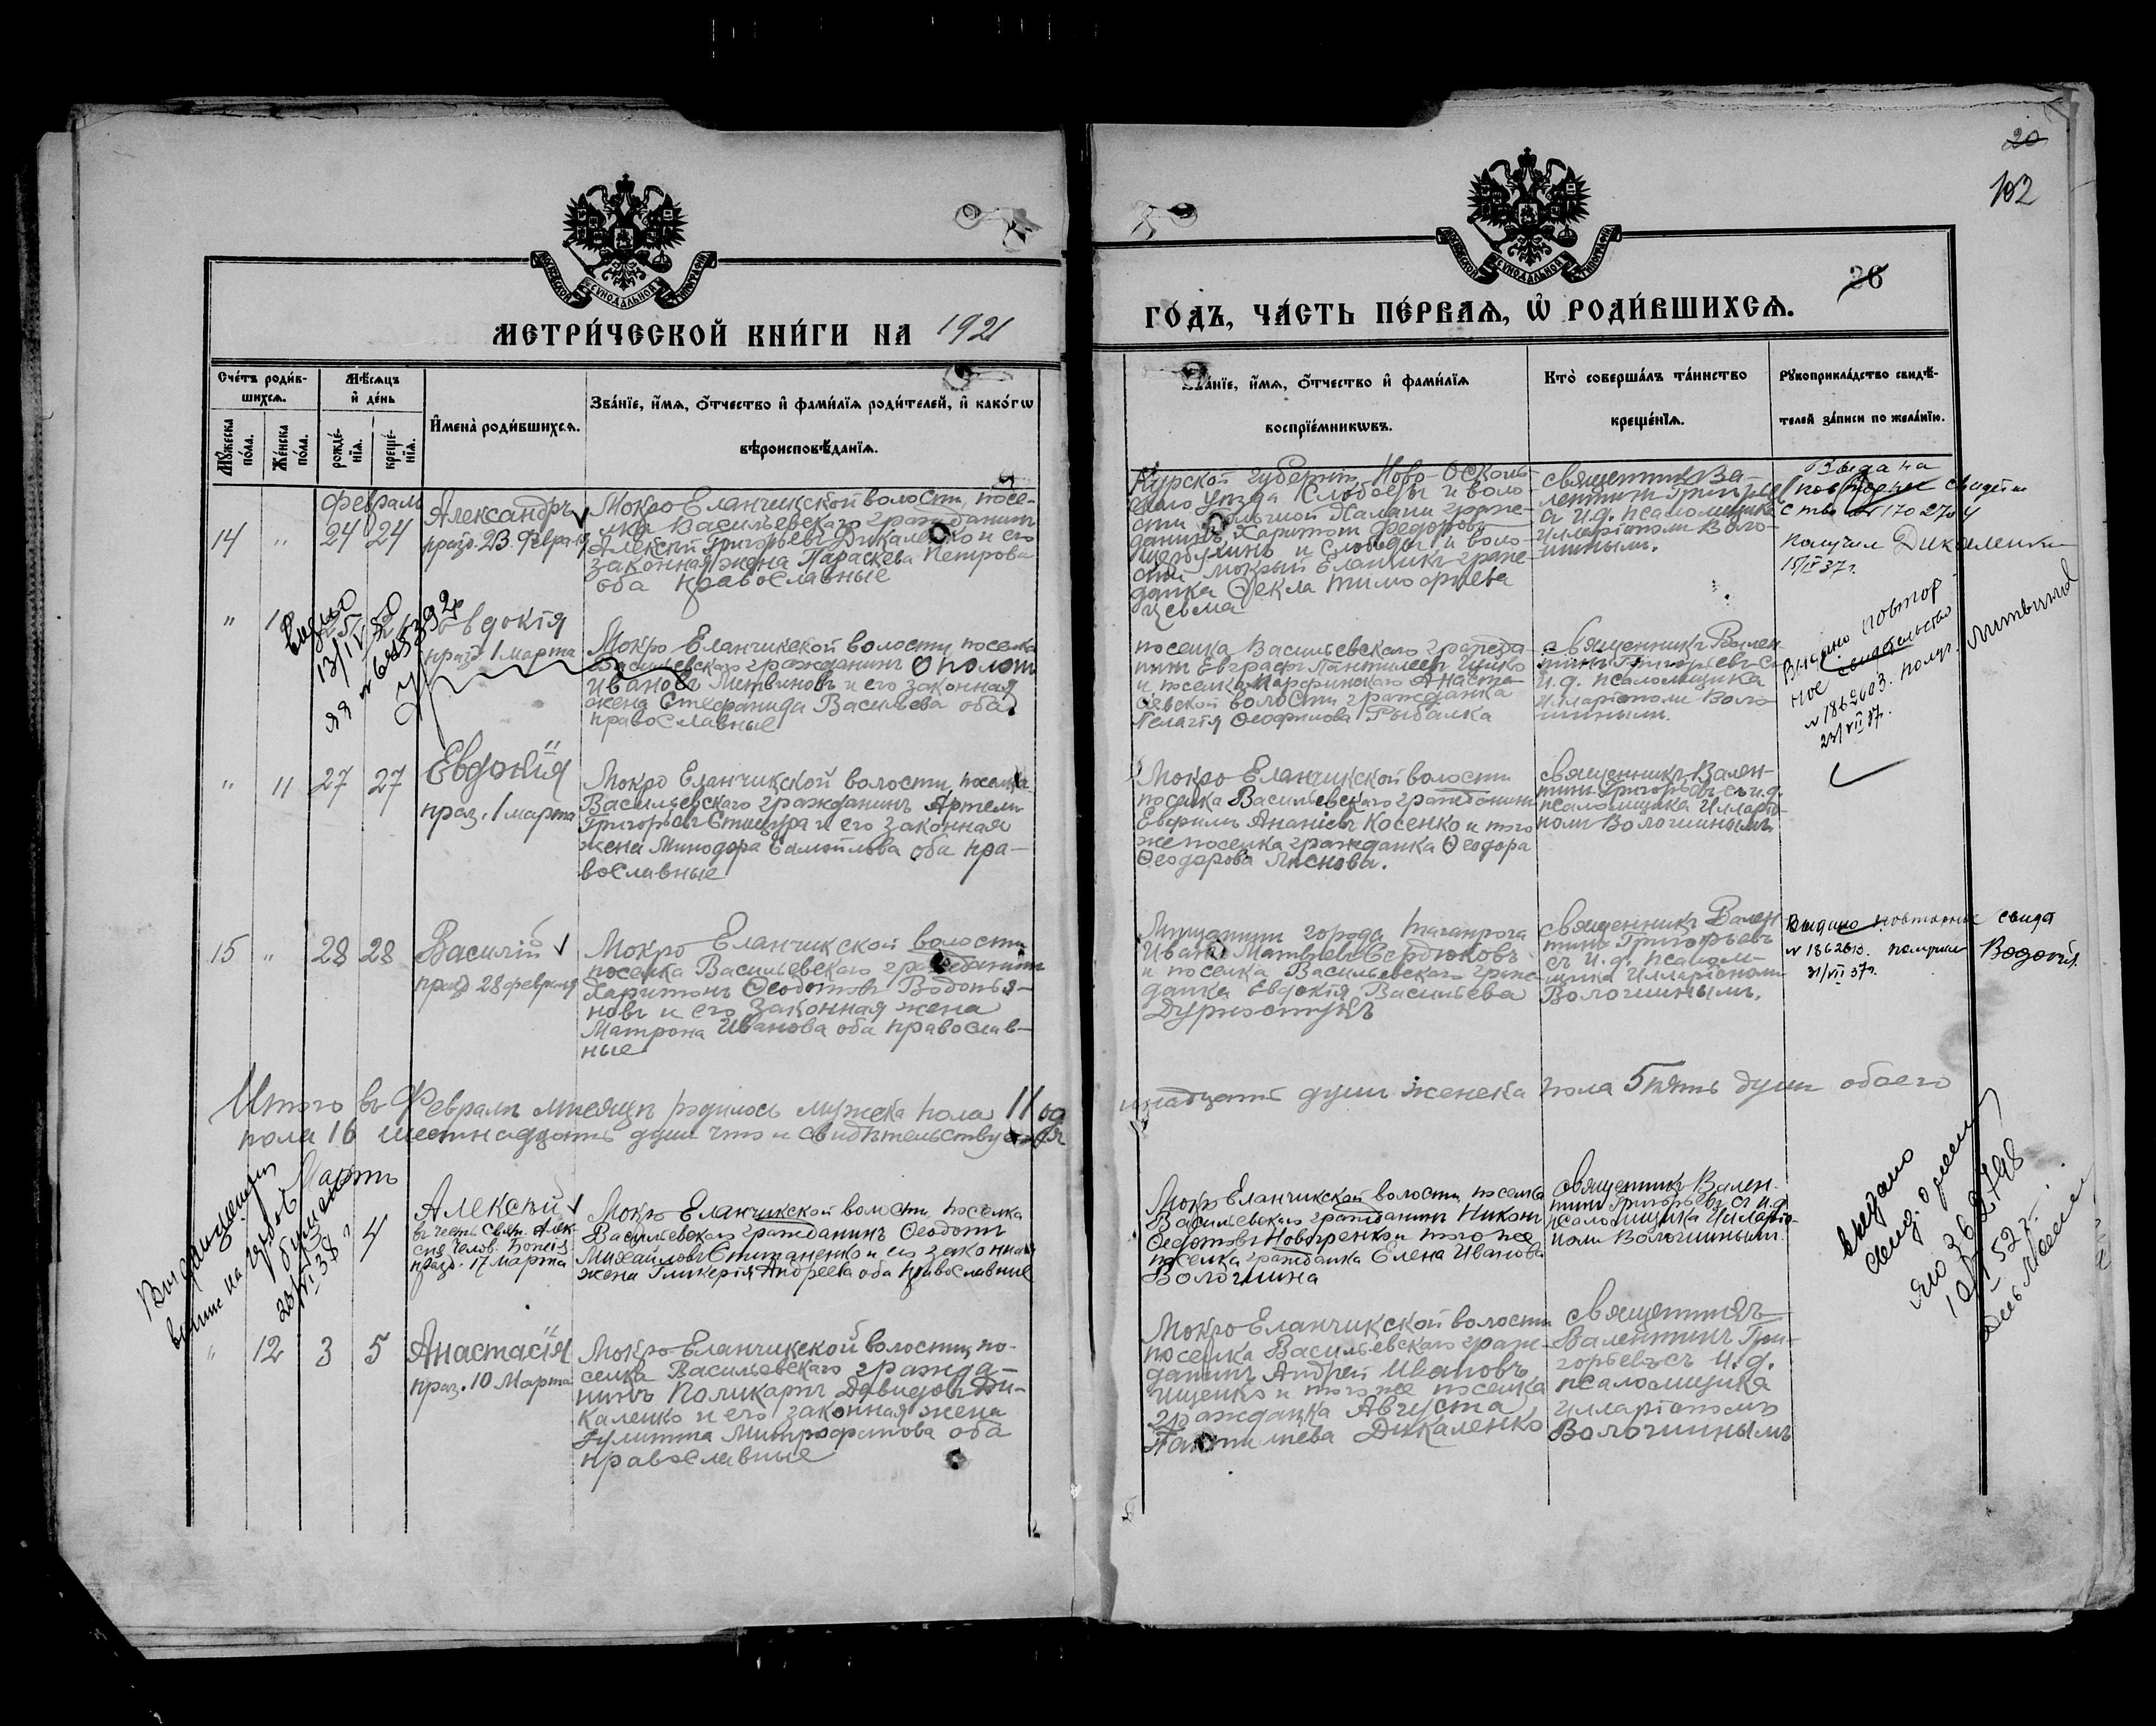 20
102
26
МЕТРИ́ЧЕСКОЙ КНИ́ГИ НА 1921
ГО́ДЪ, ЧА́СТЬ ПЕ́РВАѦ, Ѡ҆ РОДИ́ВШИХСѦ.
Сче́тъ роди́в-
шихсѧ.
Мꙋ́жеска
по́ла.
Же́нска
по́ла.
Мѣ́сѧцъ
и҆ де́нь
рожде́-
нїѧ.
креще́-
нїѧ.
И҆мена̀ роди́вшихсѧ.
Зва́нїе, и҆́мѧ, ѻ҆́тчество и҆ фами́лїѧ роди́телей, и҆ како́гѡ
вѣроисповѣ́данїѧ.
Зва́нїе, и҆́мѧ, ѻ҆́тчество и҆ фами́лїѧ
воспрїе́мникѡвъ.
Кто̀ соверша́лъ та́инство
креще́нїѧ.
Рꙋкоприкла́дство свидѣ́-
телей за́писи по жела́нїю.
Феврал
14 " 24 24
Александръ
празд. 23 Февра
Мокро Еланчикской волости, посе-
лка Васильевскаго гражданин
Алексѣй Григорьевъ Дикаленко и его
законная жена Параскева Петрова
оба православные
Курской губерніи Ново-Осколь-
скаго уѣзда Слободы и воло-
сти Халани граж-
данинъ Харитон Федоровъ
и Слободы и воло-
сти Мокрый Еланчикъ граж-
данка Ѳекла Тимофеева
Цема
священникъ Ва-
лентинъ Григорьев
съ и.д. псаломщика
Илларіоном Воло-
шиным.
Выдана
повторное свидетел
ство № 1702704
получил Дикаленко
15/IV 37г.
" 25
Евдокія
празд 1 марта
Выдано
13/IV 50
ЯЯ № 685392
Мокро Еланчикской волости поселка
Васильевскаго гражданинъ
Ивановъ Литвиновъ и его законная
жена Стефанида Васильева оба
православные
поселка Васильевскаго гражда
нин Евграфъ Пантилеев Ицко
и поселка Марфинскаго Анаста-
сіевской волости гражданка
Пелагія Ѳеофилова Рыбалка
священникъ Вален
тинъ Григорьевъ съ
и.д. псаломщика
Илларіоном Воло-
шиным.
Выдано повтор-
ное свидетельство
№ 1862603. получ. Литвинов
23/VII 37.
" 11 27 27
Евдокія
праз. 1 марта
Мокро Еланчикской волости поселка
Васильевскаго гражданинъ Артем
Григорьевъ Стацура и его законная
жена Минодора Самойлова оба пра-
вославные
Мокро Еланчикской волости
поселка Васильевскаго гражданинъ
Евфимъ Ананіевъ Косенко и того
же поселка гражданка Ѳеодора
Ѳеодорова Ляснова.
священникъ Вален-
тинъ Григорьевъ съ и.д.
псаломщика Илларіо-
ном Волошинымъ
15 " 28 28
Василій
празд 28 февраля
Мокро Еланчикской волости
поселка Васильевскаго гражданин
Харитонъ Ѳеодотовъ Водопья-
новъ и его законная жена
Матрона Иванова оба православ-
ные
Мѣщанин города Таганрога
Иванъ Матвѣевъ Сердюковъ
и поселка Васильевскаго граж-
данка Евдокія Васильева
Дурностукъ
священникъ Вален
тинъ Григорьевъ
съ и.д. псалом-
щика Илларіоном
Волошинымъ.
Выдано повторное свидет
№ 1862613. получил Водопья.
31/VII 37г.
Итого въ Февралѣ мѣсяцѣ родилось мужеска пола 11 од
инадцать душъ женска пола 5 пять душъ обоего
пола 16 шестнадцать душъ что и свидѣтельствуется
Мартъ
4
Алексѣй
въ честь Свят. Алек
сія Челов. Божія
празд. 17 Марта
23/VI 38г
Мокро Еланчикской волости, поселка
Васильевскаго гражданинъ Ѳеодотъ
Михайловъ Степаненко и его законная
жена Гликерія Андреева оба православные
Мокро Еланчикской волости, поселка
Васильевскаго гражданинъ Никонъ
Ѳедотовъ и того же
поселка гражданка Елена Иванова
Волошина
священникъ Вален-
тинъ Григорьевъ съ и.д.
псаломщика Иларіо-
ном Волошиным.
выдано
свид. о рожд
ЯЮ 362798
52 г.
" 12 3 5
Анастасія
праз. 10 Марта
Мокро Еланчикской волости, по-
селка Васильевскаго гражда-
нинъ Поликарпъ Давидовъ Ди-
каленко и его законная жена
Іулитта Митрофанова оба
православные
Мокро Еланчикской волости
поселка Васильевскаго граж-
данинъ Андрей Ивановъ
Ищенко и того же поселка
гражданка Августа
Пантилиева Дикаленко
священникъ
Валентинъ Гри-
горьевъ съ и.д.
псаломщика
Илларіономъ
Волошинымъ